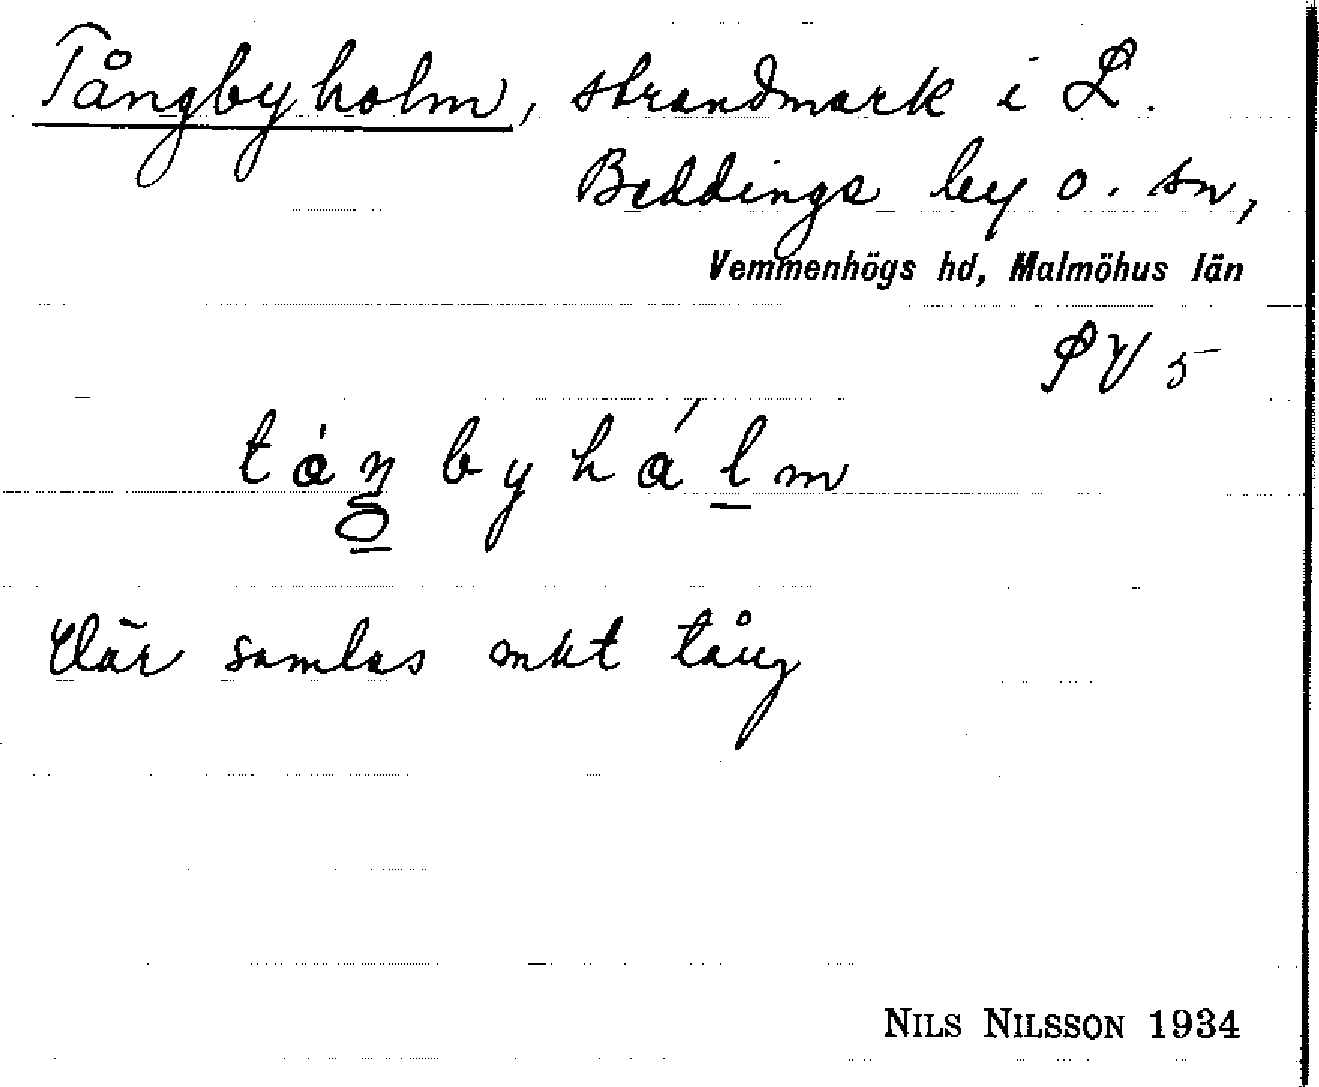 Tångbyholm, strandmark i L.
Beddinge by o. sn,
Vemmenhögs hd, Malmöhus län
SV 5
tåŋbyhålm
Där samlas mkt tång
NILS NILSSON 1934